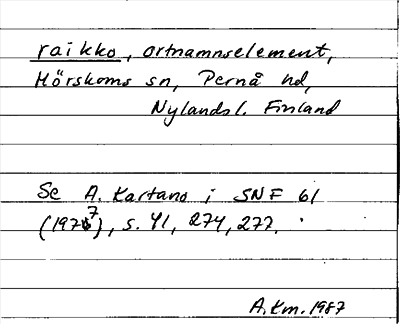 raikko, ortnamnselement,
Mörskoms sn, Pernå hd,
Nylands l. Finland
Se A. Kartano i SNF 61
(1977), s. 41, 274, 277.
A.Km. 1987